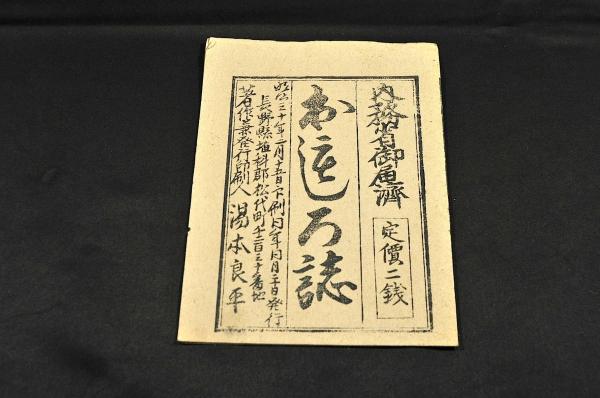 内務省御届濟
定價二銭
おもしろ誌
明治三十年二月十五日印刷同年同月二十日発行
長野縣埴科郡松代町千二百三十番地
著作兼発行印刷人 湯本良平